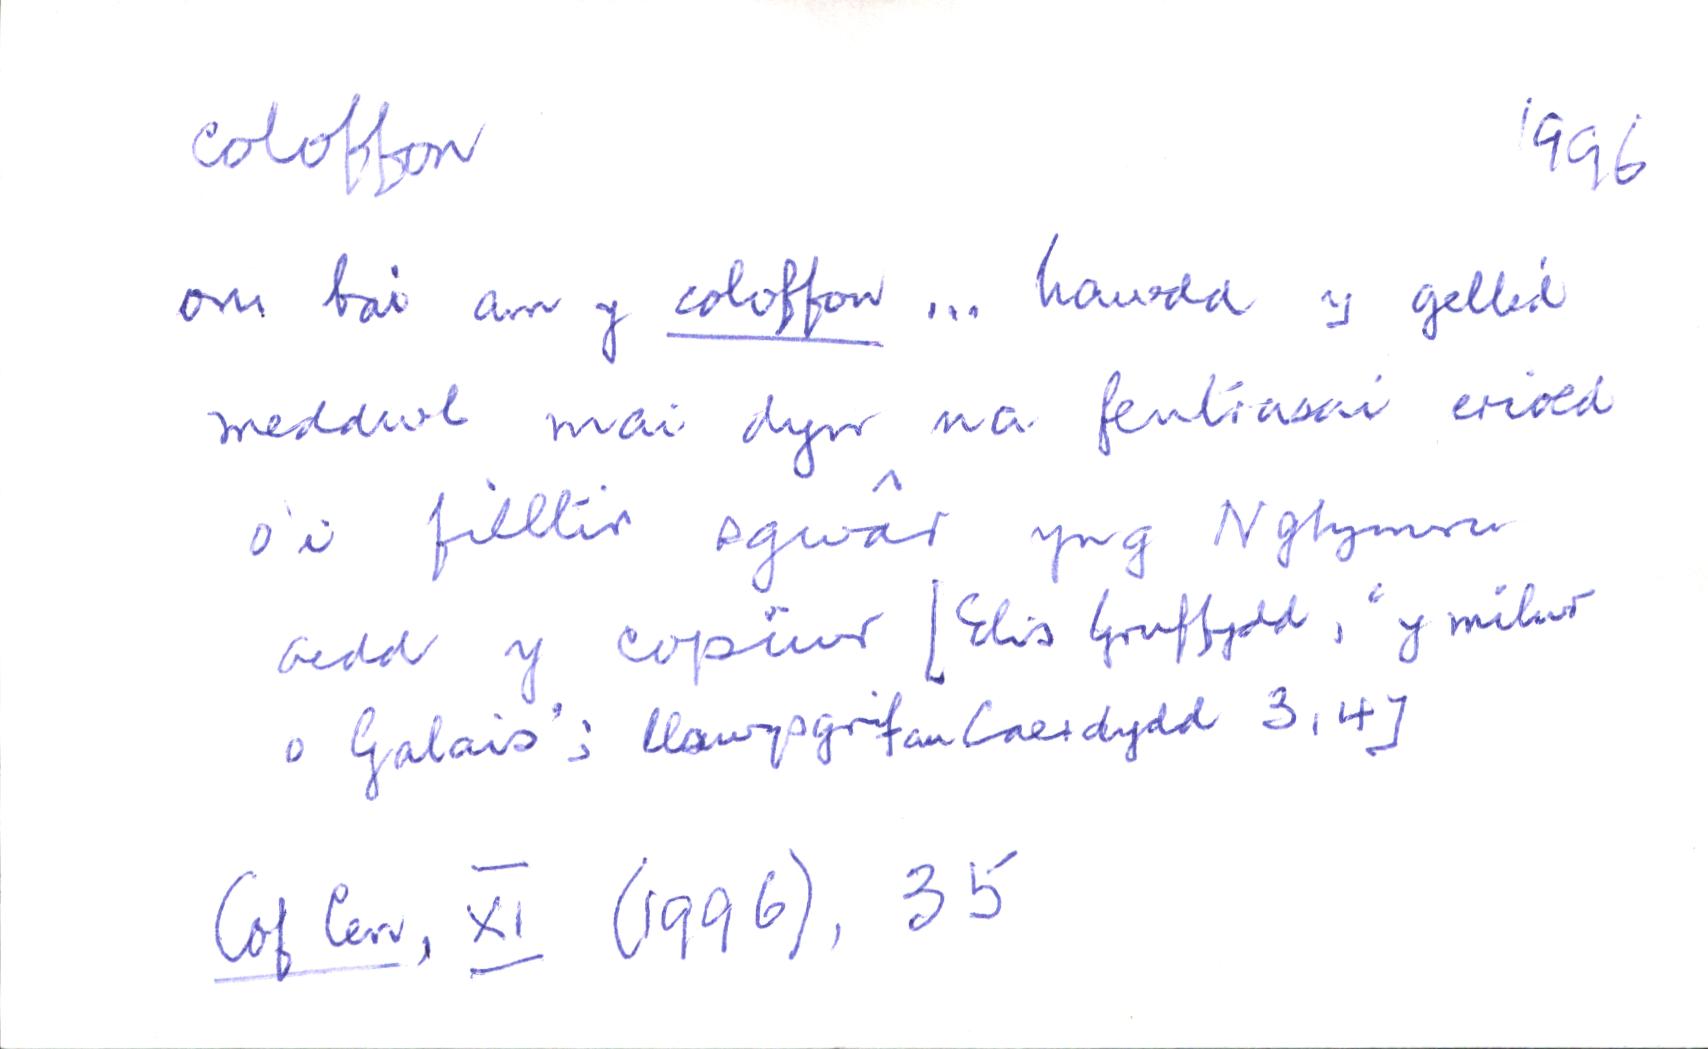 coloffon 1996
oni bai am y coloffon ... hawdd y gellid
meddwl mai dyn na fentrasai erioed
o'i filltir sgwâr yng Nghymru
oedd y copïwr [Elis Gruffydd, "y milwr
o Galais"; Llawysgrifau Caerdydd 3, 4]
Cof Cen, XI (1996), 35